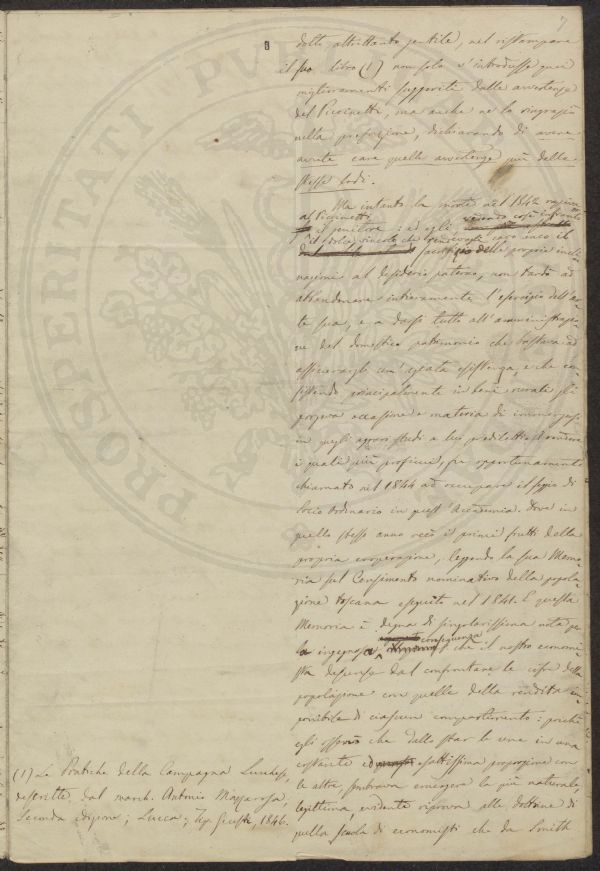 7
dotto altrettanto gentile, nel ristampare
il suo libro (1) non solo v'introdusse quei
miglioramenti suggeriti dalle avvertenze
del Piccinetti, ma anche ne lo ringraziò
nella prefazione, dichiarando di avere
avute care quelle avvertenze più delle
stesse lodi.
Ma intanto la morte nel 1842 rapiva
al Piccinetti
il genitore: ed egli vedendo così infranto
il dolce vincolo che rendevagli caro il
sacrifizio della propria incli
nazione al desiderio paterno, non tardò ad
abbandonare intieramente l'esercizio dell'ar
te sua, e a darsi tutto all'amministrazio
ne del domestico patrimonio che bastava ad
assicuragli un'agiata esistenza, e che con
sistendo principalmente in beni rurali gli
porgeva occasione e materia di
in quegli agrari studi a lui prediletti.
i quali più proficui, fu opportunamente
chiamato nel 1844 ad occupare il seggio di
Socio Ordinario in quest'Accademia. Dove in
quello stesso anno recò i primi frutti della
propria cooperazione, leggendo la sua Memo
ria sul Censimento nominativo della popola
zione toscana eseguito nel 1841. E questa
Memoria è degna di singolarissima nota pe
la ingegnosa conseguenza che il nostro economi
sta desunse dal confrontare le cifre della
popolazione con quelle della rendita im
ponibile di ciascun compartimento: perchè
egli osservò che dallo star le une in una
costante ed esattissima proporzione con
le altre sembrava emergere la più naturale,
legittima, evidente riprova alle dottrine di
quella scuola di economisti che da Smith
(1) Le Pratiche della Campagna Lucchese,
descritte dal march. Antonio Mazzarosa,
Seconda edizione; Lucca; Tip. Giusti, 1846.
PROSPERITATI